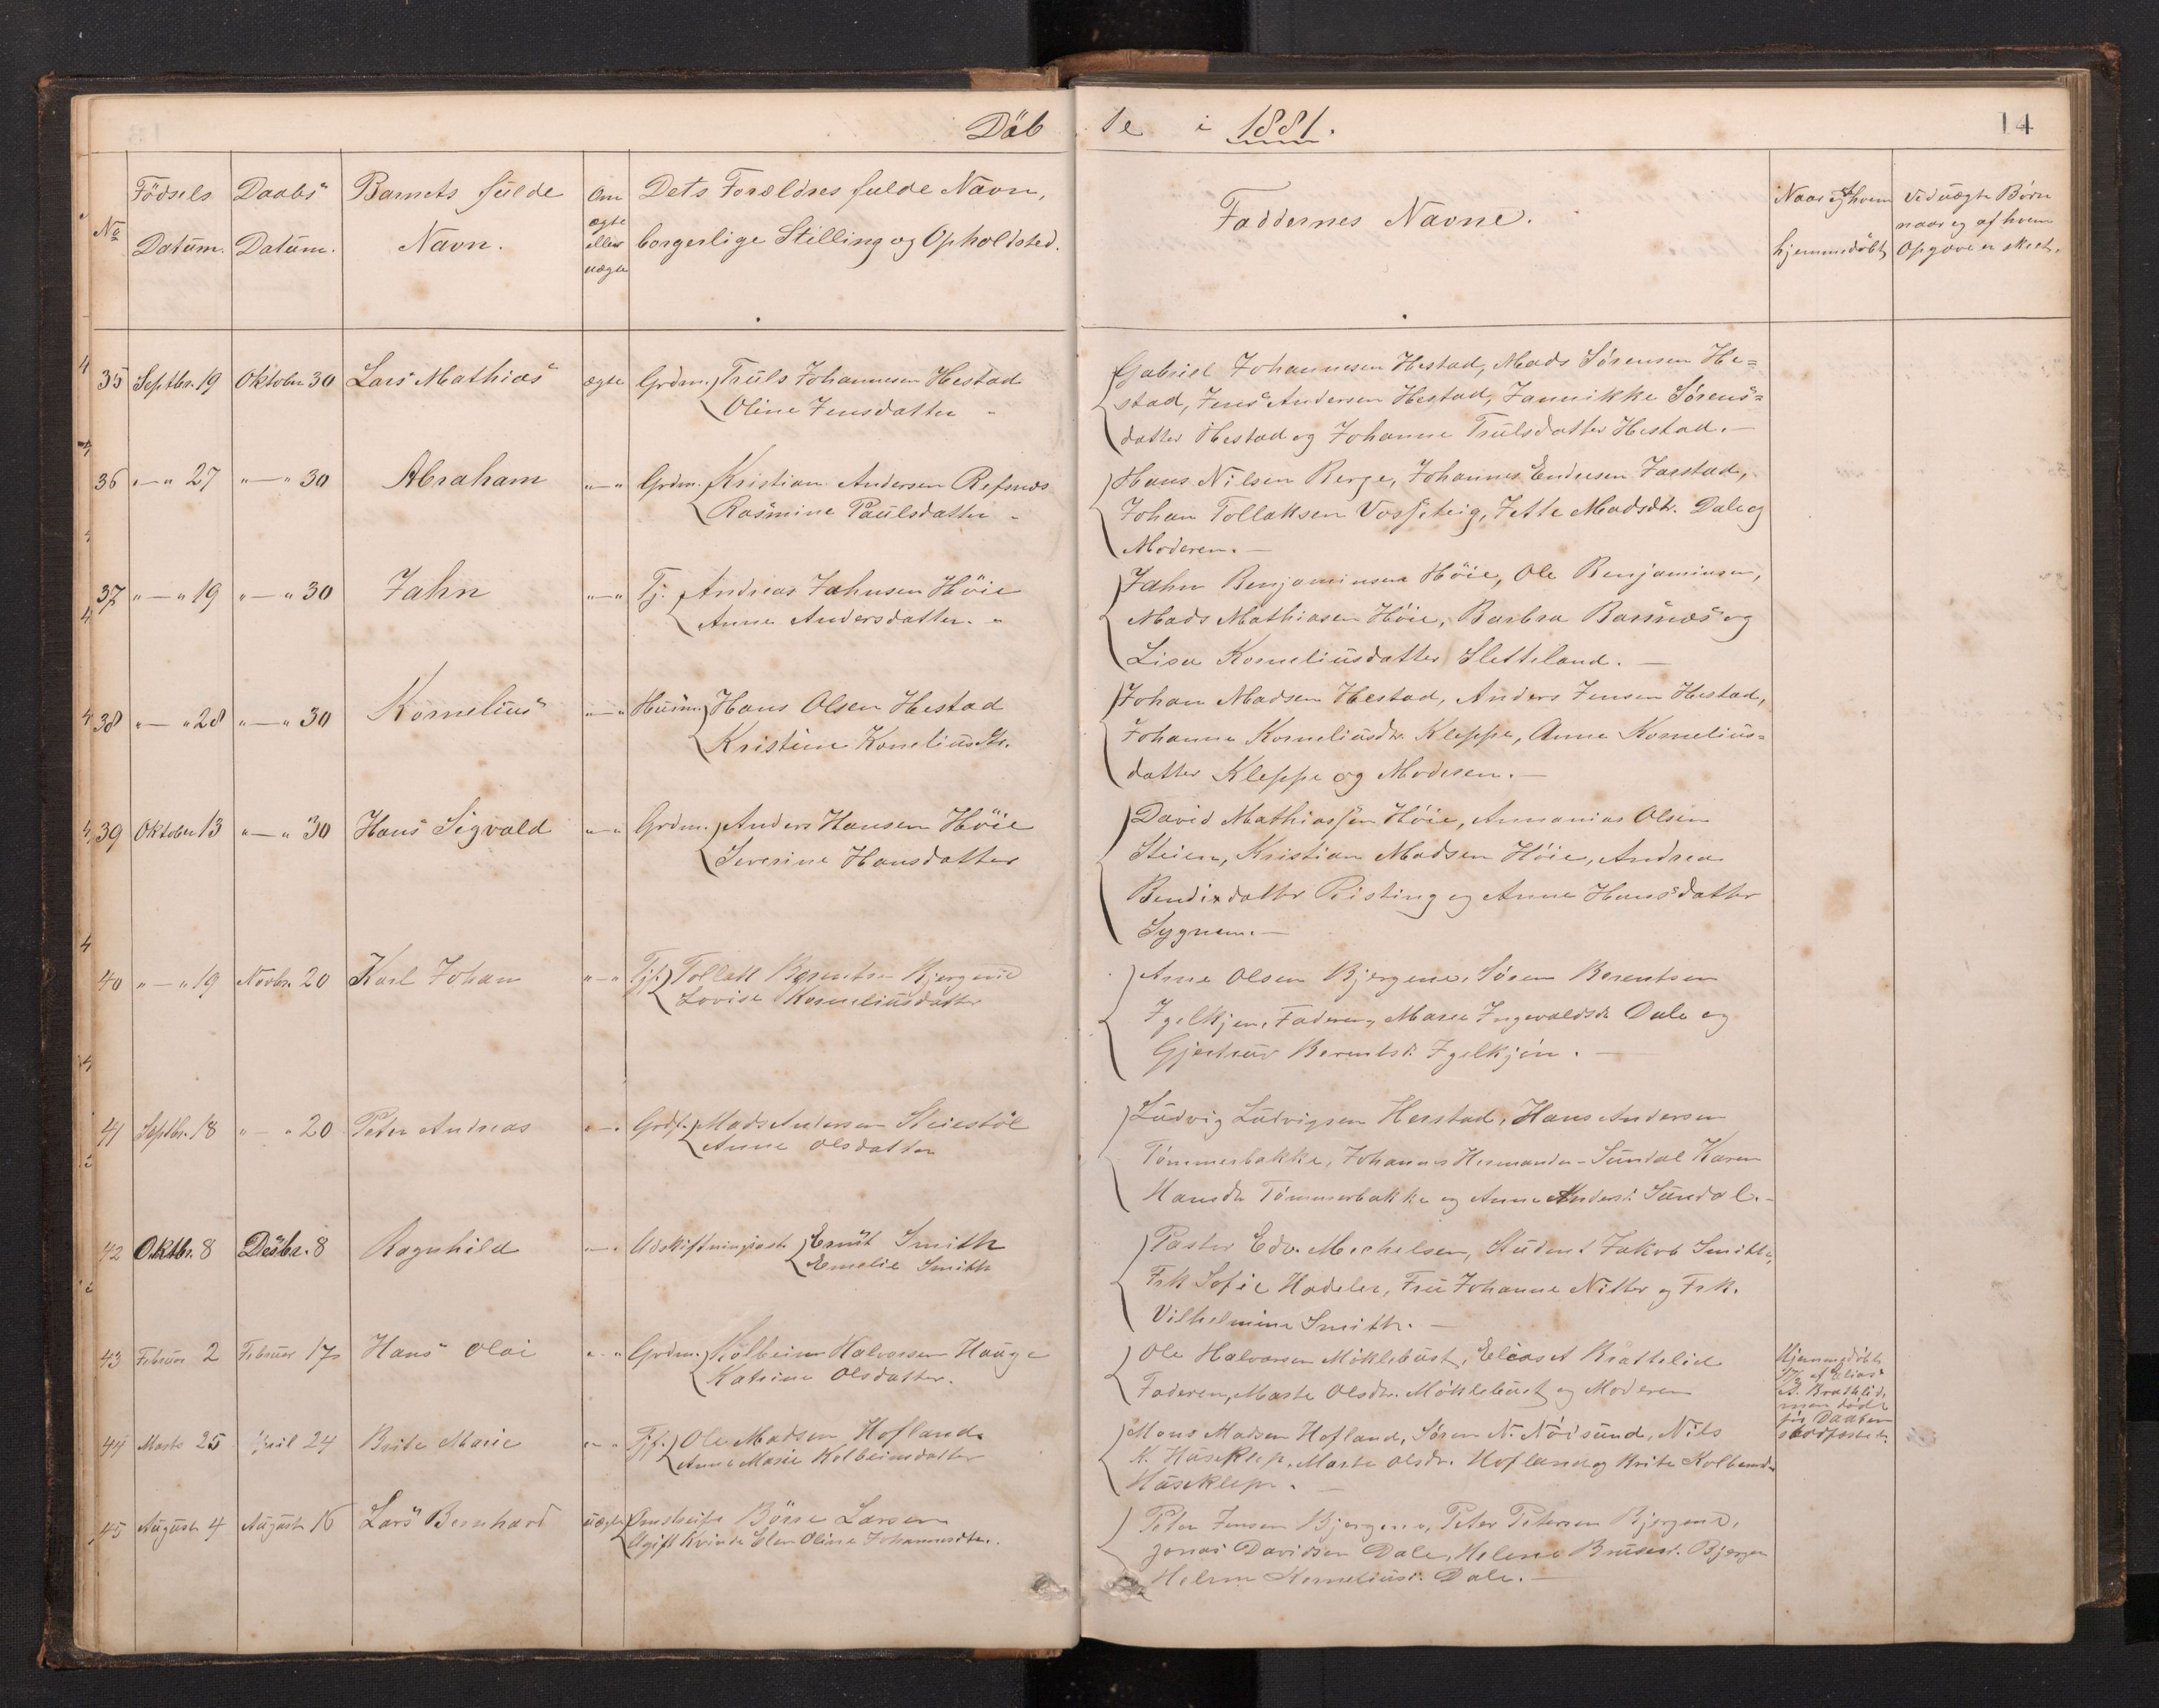 Döb te i 1881.
14
No
Födsels Datum.
Daabs Datum.
Barnets fulde Navn.
Om ægte eller uægte
Dets Forældres fulde Navn, borgerlige Stilling og Opholdsted.
Faddernes Navne.
Naar og af hvem hjemmedöbt
Ved uægte Börn naar og af hvem Opgave er skeet.
35 Septbr. 19 Oktober 30 Lars Mathias ægte Grdm. Truls Johannesen Hestad
Oline Jensdatter -
Gabriel Johannesen Hestad, Mads Sørensen He=
stad, Jens Andersen Hestad, Jannikke Sørens=
datter Hestad og Johanne Trulsdatter Hestad. —
36 „ — „ 27 „ — „ 30 Abraham „ — „ Grdm. Kristian Andersen Refsnæs
Rasmine Paulsdatter -
Hans Nilsen Berge, Johannes Endresen Jarstad,
Johan Tollaksen Vosseteig, Jette Madsdtr. Dale og
Moderen. —
37 „ — „ 19 „ — „ 30 Jahn „ — „ Tj. Andreas Jahnsen Höie
Anne Andersdatter. „
Jahn Benjaminsen Höie, Ole Benjaminsen,
Mads Mathiasen Höie, Barbra Barsnæs og
Lisa Korneliusdatter Sletteland. —
38 „ — „ 28 „ — „ 30 Kornelius „ — „ Husm. Hans Olsen Hestad
Kristine Korneliusdtr.
Johan Madsen Hestad, Anders Jensen Hestad,
Johanne Korneliusdtr. Kleppe, Anne Kornelius=
datter Kleppe og Moderen. —
39 Oktober 13 „ — „ 30 Hans Sigvald „ — „ Grdm. Anders Hansen Höie
Severine Hansdatter
David Mathiassen Höie, Annanias Olsen
Steien, Kristian Madsen Höie, Andrea
Bendixdatter Risting og Anne Hansdatter
Sygnem. —
40 „ — „ 19 Novbr. 20 Karl Johan „ — „ Tjf. Tollak Berentsen Bjergene
Lovise Korneliusdatter
Arne Olsen Bjergene, Søren Berentsen
Igelkjøn, Faderen, Marie Ingevaldsdr. Dale og
Gjertrud Berentsd. Igelkjön. —
41 Septbr. 18 „ — „ 20 Peter Andreas „ — „ Grdf. Mads Andersen Steiestöl
Anne Olsdatter
Ludvig Ludvigsen Herstad, Hans Andersen
Tömmerbakke, Johannes Hermansen Sundal Karen
Hansdr. Tömmerbakke og Anne Andersd. Sundal. -
42 Oktbr. 8 Desbr. 8 Ragnhild „ — „ Ernst Smith
Emelie Smith
Pastor Edv. Mechelsen, Student Jakob Smith,
Frk Sofie Hadeler, Fru Johanne Nitter og Frk.
Vilhelmine Smith. —
43 Februar 2 Februar 17 Hans Olai „ — „ Grdm. Kolbein Halvorsen Hauge
Katrine Olsdatter.
Ole Halvorsen Möklebust, Elias A Brattelid
Faderen, Marte Olsdr. Möklebust og Moderen
Hjemmedöbt
af Elias
A. Brattelid,
men döde
för Daaben
stadfæstedes.
44 Marts 25 April 24 Brite Marie „ — „ Tjf. Ole Madsen Hofland
Anne Marie Kolbeinsdatter
Mons Madsen Hofland, Søren N. Nöisund, Nils
K. Huseklep, Marte Olsdr. Hofland og Brite Kolbeinsdr.
Huseklep. —
45 August 4 August 16 Lars Bernhard uægte Börre Larsen
Ugift Kvinde Elen Oline Johannesdtr.
Peter Jensen Bjergene, Peter Petersen Bjergene,
Jonas Davidsen Dale, Helene Bjergen
Helene Korneliusd. Dale. —